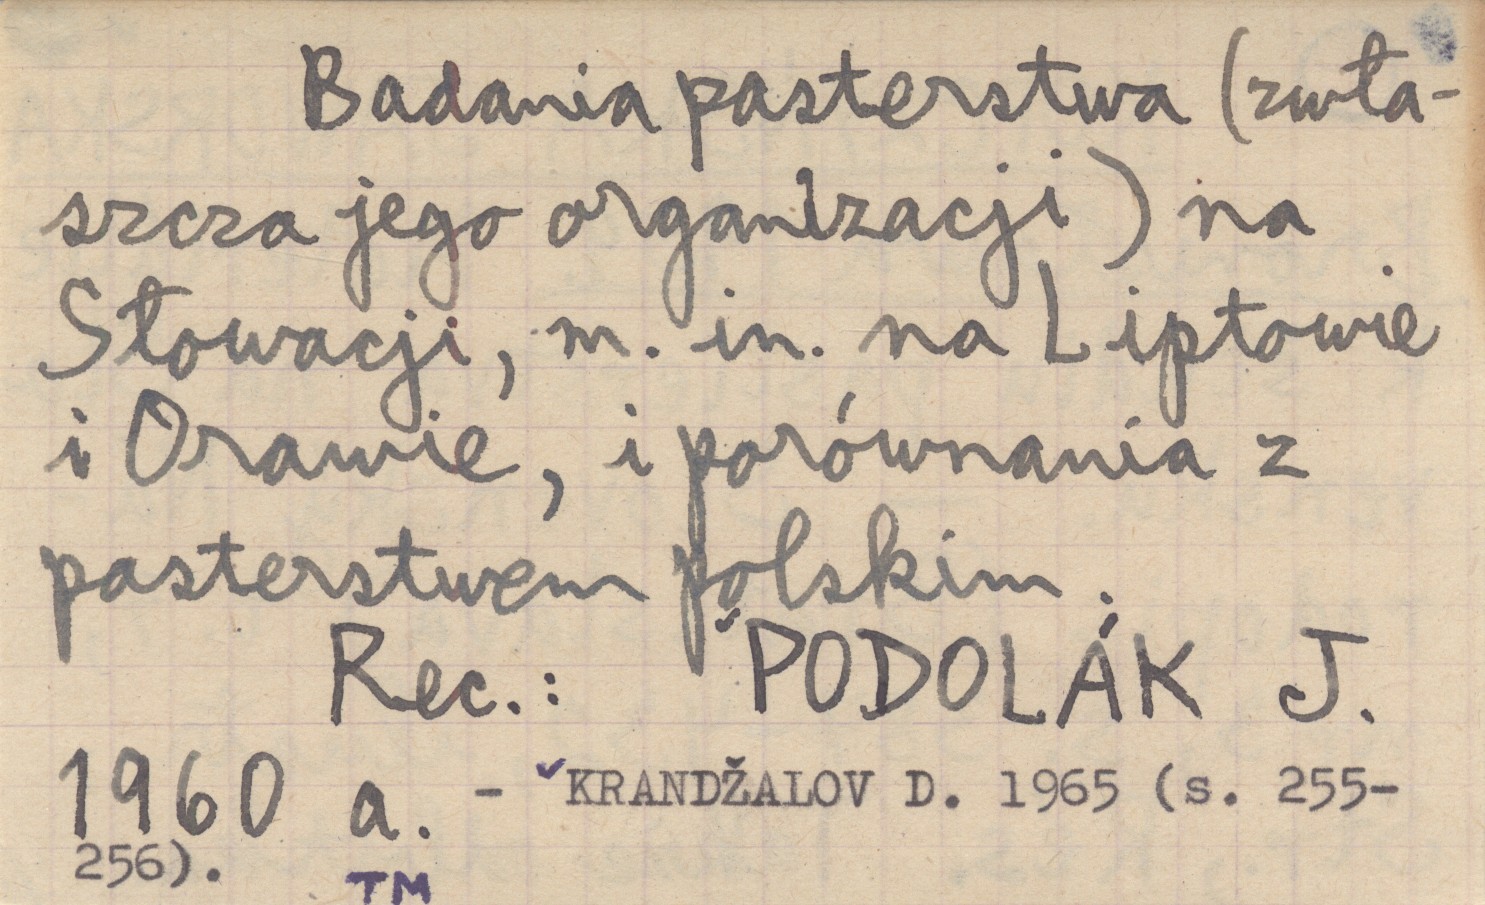 Badania pasterstwa (zwła-
szcza jego organizacji) na
Słowacji, m. in. na Liptowie
i Orawie, i porównania z
pasterstwem polskim.
Rec.: PODOLÁK J.
1960 a. - KRANDŽALOV D. 1965 (s. 255-
256).
TM